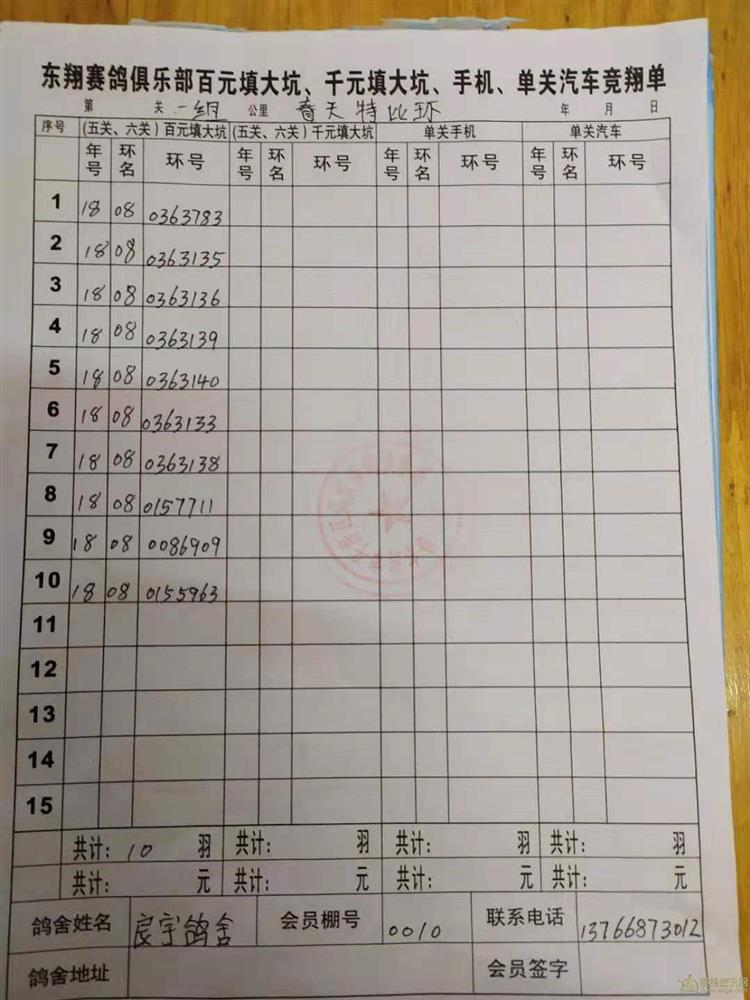 东翔赛鸽俱乐部百元填大坑、千元填大坑、手机、单关汽车竞翔单
第 关 一组 公里 春天特比环 年 月 日
序号 (五关、六关) 百元填大坑 (五关、六关) 千元填大坑 单关手机 单关汽车
年号 环名 环号 年号 环名 环号 年号 环名 环号 年号 环名 环号
1 18 08 0363783
2 18 08 0363135
3 18 08 0363136
4 18 08 0363139
5 18 08 0363140
6 18 08 0363133
7 18 08 0363138
8 18 08 0157711
9 18 08 0086909
10 18 08 0155963
11
12
13
14
15
共计: 10 羽 共计: 羽 共计: 羽 共计: 羽
共计: 元 共计: 元 共计: 元 共计: 元
鸽舍姓名 宸宇鸽舍 会员棚号 0010 联系电话 13766873012
鸽舍地址 会员签字